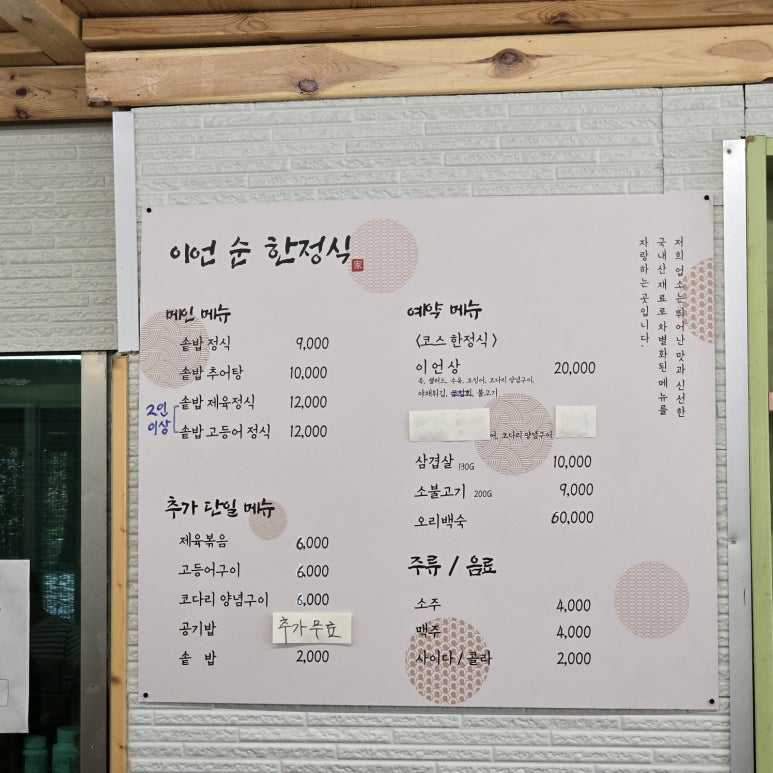 이언 순 한정식
家
메인 메뉴
솥밥 정식 9,000
솥밥 추어탕 10,000
솥밥 제육정식 12,000
솥밥 고등어 정식 12,000
2인
이상
추가 단일 메뉴
제육볶음 6,000
고등어구이 6,000
코다리 양념구이 6,000
공기밥 추가 무료
솥 밥 2,000
예약 메뉴
<코스 한정식>
이언상 20,000
죽, 샐러드, 수육, 오징어, 코다리 양념구이,
야채튀김, 불고기
어, 코다리 양념구이
삼겹살 130G 10,000
소불고기 200G 9,000
오리백숙 60,000
주류 / 음료
소주 4,000
맥주 4,000
사이다 / 콜라 2,000
저희 업소는 뛰어난 맛과 신선한
국내산 재료로 차별화된 메뉴를
자랑하는 곳입니다.